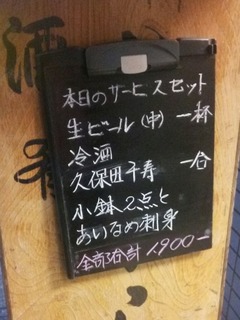 酒
本日のサービスセット
生ビール(中) 一杯
冷酒
久保田千寿 一合
小鉢2点と
あいなめ刺身
全部合計 1,900-